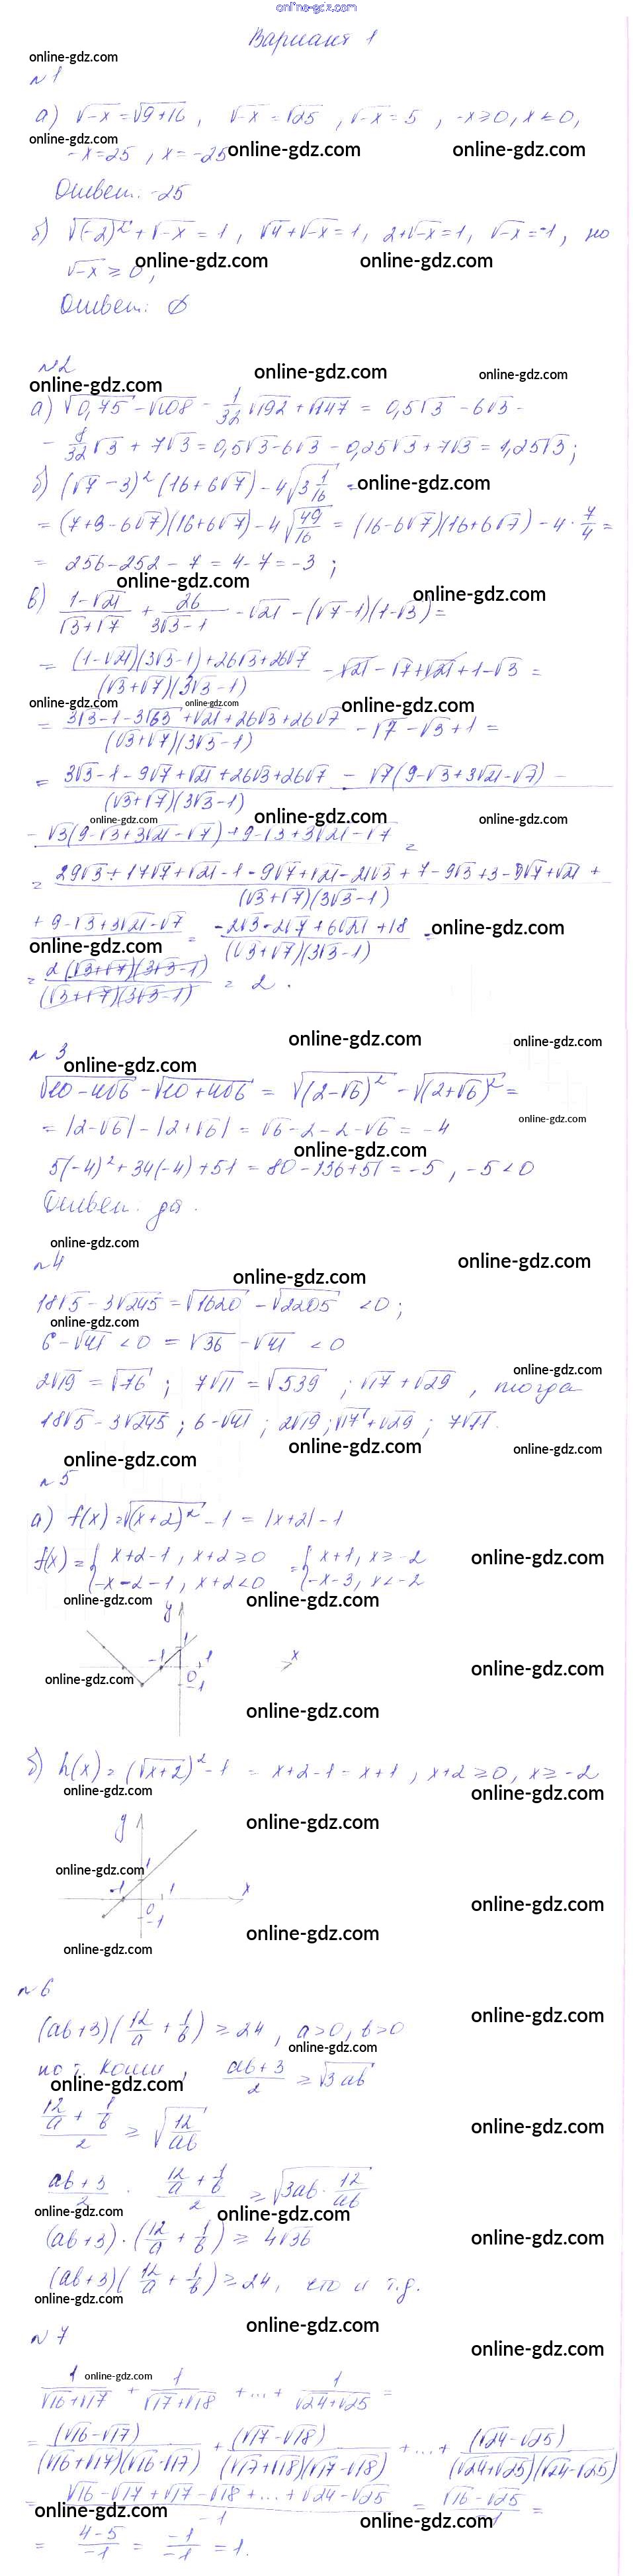 online-gdz.com
Вариант 1
online-gdz.com
№1
а) √-x = √9+16, √-x = √25, √-x = 5, -x ≥ 0, x ≤ 0,
online-gdz.com
-x = 25, x = -25 online-gdz.com online-gdz.com
Ответ: -25
б) √(-2)² + √-x = 1, √4 + √-x = 1, 2 + √-x = 1, √-x = -1, но
online-gdz.com online-gdz.com
√-x ≥ 0,
Ответ: ∅
№2
online-gdz.com online-gdz.com
online-gdz.com
а) √0,75 - √108 - 1/32 √192 + √147 = 0,5√3 - 6√3 -
- 8/32 √3 + 7√3 = 0,5√3 - 6√3 - 0,25√3 + 7√3 = 1,25√3;
б) (√7 - 3)² (16 + 6√7) - 4√3 1/16 = online-gdz.com
= (7+9-6√7)(16+6√7) - 4√49/16 = (16-6√7)(16+6√7) - 4 · 7/4 =
= 256 - 252 - 7 = 4 - 7 = -3;
online-gdz.com online-gdz.com
в) (1-√21)/(√3+√7) + 26/(3√3-1) - √21 - (√7-1)(1-√3) =
= ((1-√21)(3√3-1)+26√3+26√7)/((√3+√7)(3√3-1)) - √21 - √7 + √21 + 1 - √3 =
online-gdz.com online-gdz.com online-gdz.com
= (3√3-1-3√63+√21+26√3+26√7)/((√3+√7)(3√3-1)) - √7 - √3 + 1 =
= (3√3-1-9√7+√21+26√3+26√7 - √7(9-√3+3√21-√7) -)/((√3+√7)(3√3-1))
online-gdz.com online-gdz.com online-gdz.com
- √3(9-√3+3√21-√7)+9-√3+3√21-√7 =
= (29√3+17√7+√21-1-9√7+√21-21√3+7-9√3+3-9√7+√21 +)/((√3+√7)(3√3-1))
+ 9-√3+3√21-√7 = (-2√3-2√7+6√21+18)/((√3+√7)(3√3-1)) = online-gdz.com
online-gdz.com
= 2(√3+√7)(3√3-1)/((√3+√7)(3√3-1)) = 2.
online-gdz.com online-gdz.com
№3
online-gdz.com
√10-4√6 - √10+4√6 = √(2-√6)² - √(2+√6)² =
online-gdz.com
= |2-√6| - |2+√6| = √6 - 2 - 2 - √6 = -4
online-gdz.com
5(-4)² + 34(-4) + 51 = 80 - 136 + 51 = -5, -5 < 0
Ответ: да.
online-gdz.com
№4 online-gdz.com
online-gdz.com
18√5 - 3√245 = √1620 - √2205 < 0;
online-gdz.com
6 - √41 < 0 = √36 - √41 < 0
online-gdz.com
2√19 = √76; 7√11 = √539; √17 + √29, тогда
18√5 - 3√245; 6 - √41; 2√19; √17 + √29; 7√11.
online-gdz.com online-gdz.com online-gdz.com
№5
а) f(x) = √(x+2)² - 1 = |x+2| - 1
f(x) = { x+2-1, x+2 ≥ 0 = { x+1, x ≥ -2
-x-2-1, x+2 < 0 -x-3, x < -2
online-gdz.com
online-gdz.com online-gdz.com
y
1
-1 1 x
online-gdz.com 0 online-gdz.com
-1
online-gdz.com
б) h(x) = (√x+2)² - 1 = x+2-1 = x+1, x+2 ≥ 0, x ≥ -2
online-gdz.com online-gdz.com
y online-gdz.com
online-gdz.com 1
-1 1 x
0 online-gdz.com
-1
online-gdz.com
online-gdz.com
№6
online-gdz.com
(ab+3)(12/a + 1/b) ≥ 24, a>0, b>0
online-gdz.com
по т. Коши, (ab+3)/2 ≥ √3ab
online-gdz.com
(12/a + 1/b)/2 ≥ √12/ab
online-gdz.com
(ab+3)/2 · (12/a + 1/b)/2 ≥ √3ab · 12/ab
online-gdz.com online-gdz.com
(ab+3) · (12/a + 1/b) ≥ 4√36
online-gdz.com
(ab+3)(12/a + 1/b) ≥ 24, что и т.д.
online-gdz.com
online-gdz.com
№7
online-gdz.com
online-gdz.com
1/(√16+√17) + 1/(√17+√18) + ... + 1/(√24+√25) =
= (√16-√17)/((√16+√17)(√16-√17)) + (√17-√18)/((√17+√18)(√17-√18)) + ... + (√24-√25)/((√24+√25)(√24-√25))
= (√16-√17+√17-√18+...+√24-√25)/-1 = (√16-√25)/-1 =
online-gdz.com online-gdz.com
= (4-5)/-1 = -1/-1 = 1.